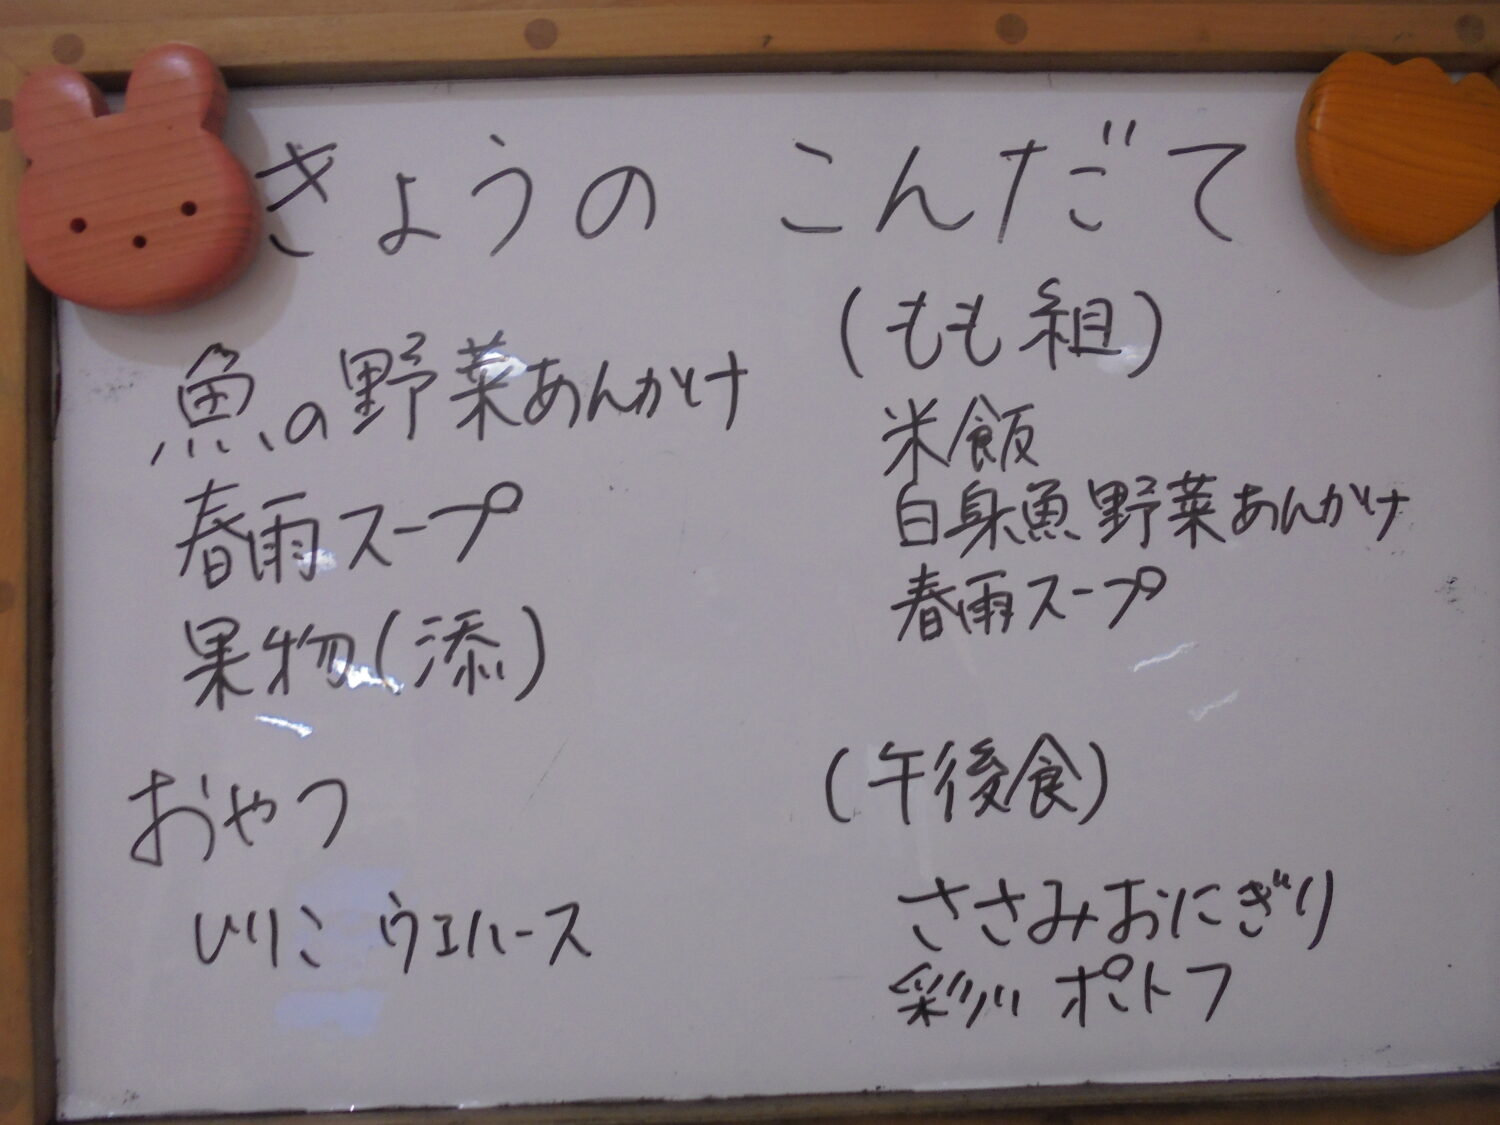 きょうの こんだて
魚の野菜あんかけ
春雨スープ
果物(添)
おやつ
いりこ ウエハース
(もも組)
米飯
白身魚野菜あんかけ
春雨スープ
(午後食)
ささみおにぎり
彩り ポトフ